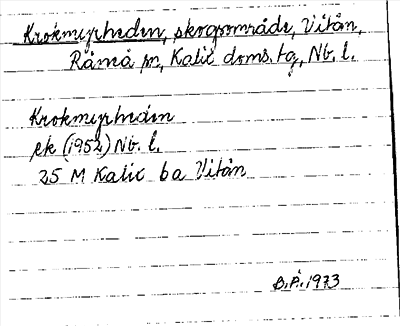 Krokmyrheden, skogområde, Vitån,
Råneå sn, Kalix doms. tg, Nb. l.
Krokmyrheden
ek (1952) Nb. l.
25 M Kalix b a Vitån
B.Å. 1973